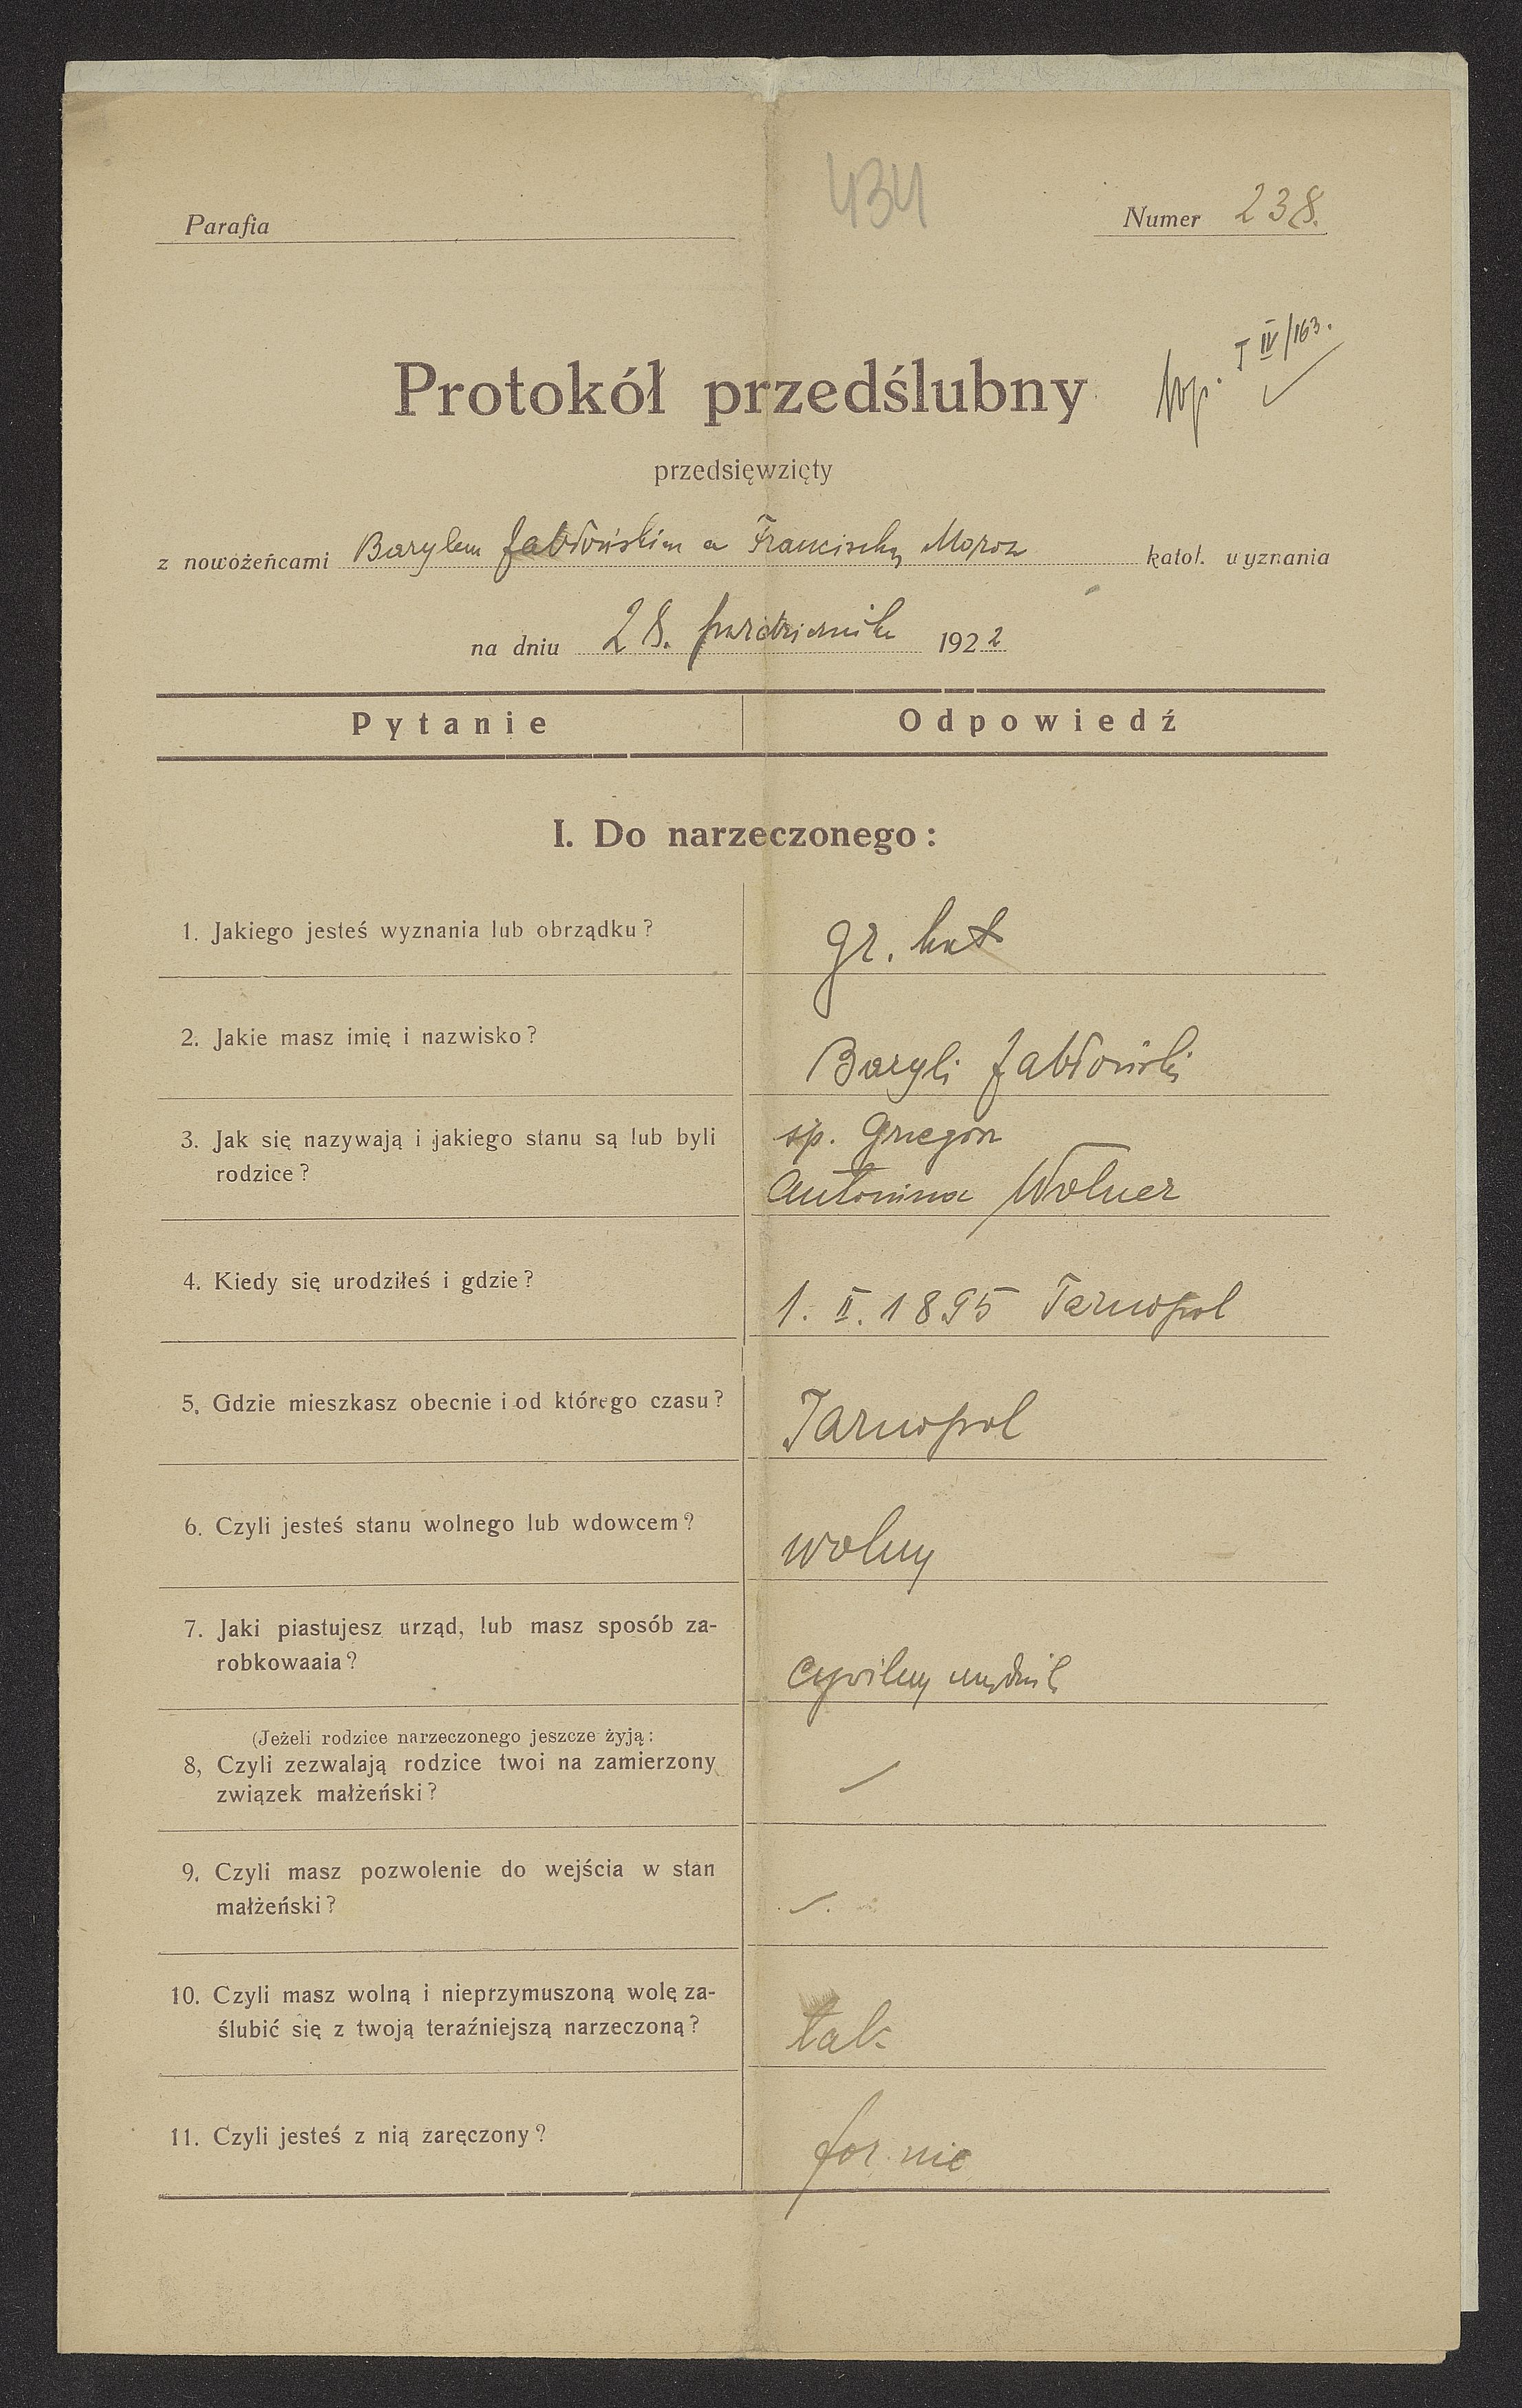 434
Parafia
Numer 238.
wp. T IV/163.
Protokół przedślubny
przedsięwzięty
z nowożeńcami Bazylem Jabłońskim a Franciszką Moroz katol. wyznania
na dniu 28. październik 1922
Pytanie Odpowiedź
I. Do narzeczonego:
1. Jakiego jesteś wyznania lub obrządku? gr. kat
2. Jakie masz imię i nazwisko? Bazyli Jabłoński
3. Jak się nazywają i jakiego stanu są lub byli śp. Grzegorz
rodzice? Antonina Wolner
4. Kiedy się urodziłeś i gdzie? 1. II. 1895 Tarnopol
5. Gdzie mieszkasz obecnie i od którego czasu? Tarnopol
6. Czyli jesteś stanu wolnego lub wdowcem? wolny
7. Jaki piastujesz urząd, lub masz sposób za-
robkowaaia? cywilny urzędnik
(Jeżeli rodzice narzeczonego jeszcze żyją:
8, Czyli zezwalają rodzice twoi na zamierzony
związek małżeński?
9. Czyli masz pozwolenie do wejścia w stan
małżeński?
10. Czyli masz wolną i nieprzymuszoną wolę za-
ślubić się z twoją teraźniejszą narzeczoną? tak
11. Czyli jesteś z nią zaręczony? for. nie